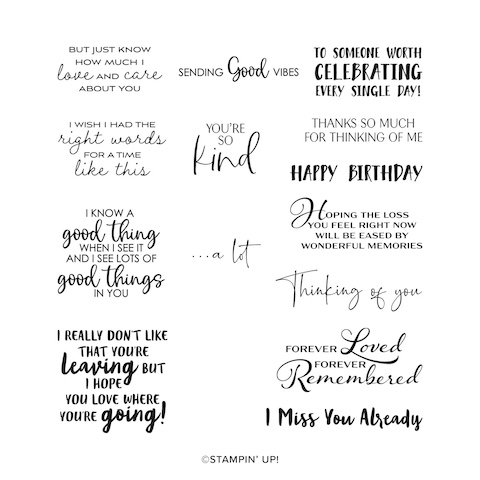 BUT JUST KNOW
HOW MUCH I
love AND care
ABOUT YOU
SENDING Good VIBES
TO SOMEONE WORTH
CELEBRATING
EVERY SINGLE DAY!
I WISH I HAD THE
right words
FOR A TIME
like this
YOU'RE
SO
kind
THANKS SO MUCH
FOR THINKING OF ME
HAPPY BIRTHDAY
I KNOW A
good thing
WHEN I SEE IT
AND I SEE LOTS OF
good things
IN YOU
...a lot
HOPING THE LOSS
YOU FEEL RIGHT NOW
WILL BE EASED BY
WONDERFUL MEMORIES
Thinking of you
I REALLY DON'T LIKE
THAT YOU'RE
leaving BUT
I HOPE
YOU LOVE WHERE
YOU'RE going!
FOREVER Loved
FOREVER
Remembered
I Miss You Already
©STAMPIN' UP!